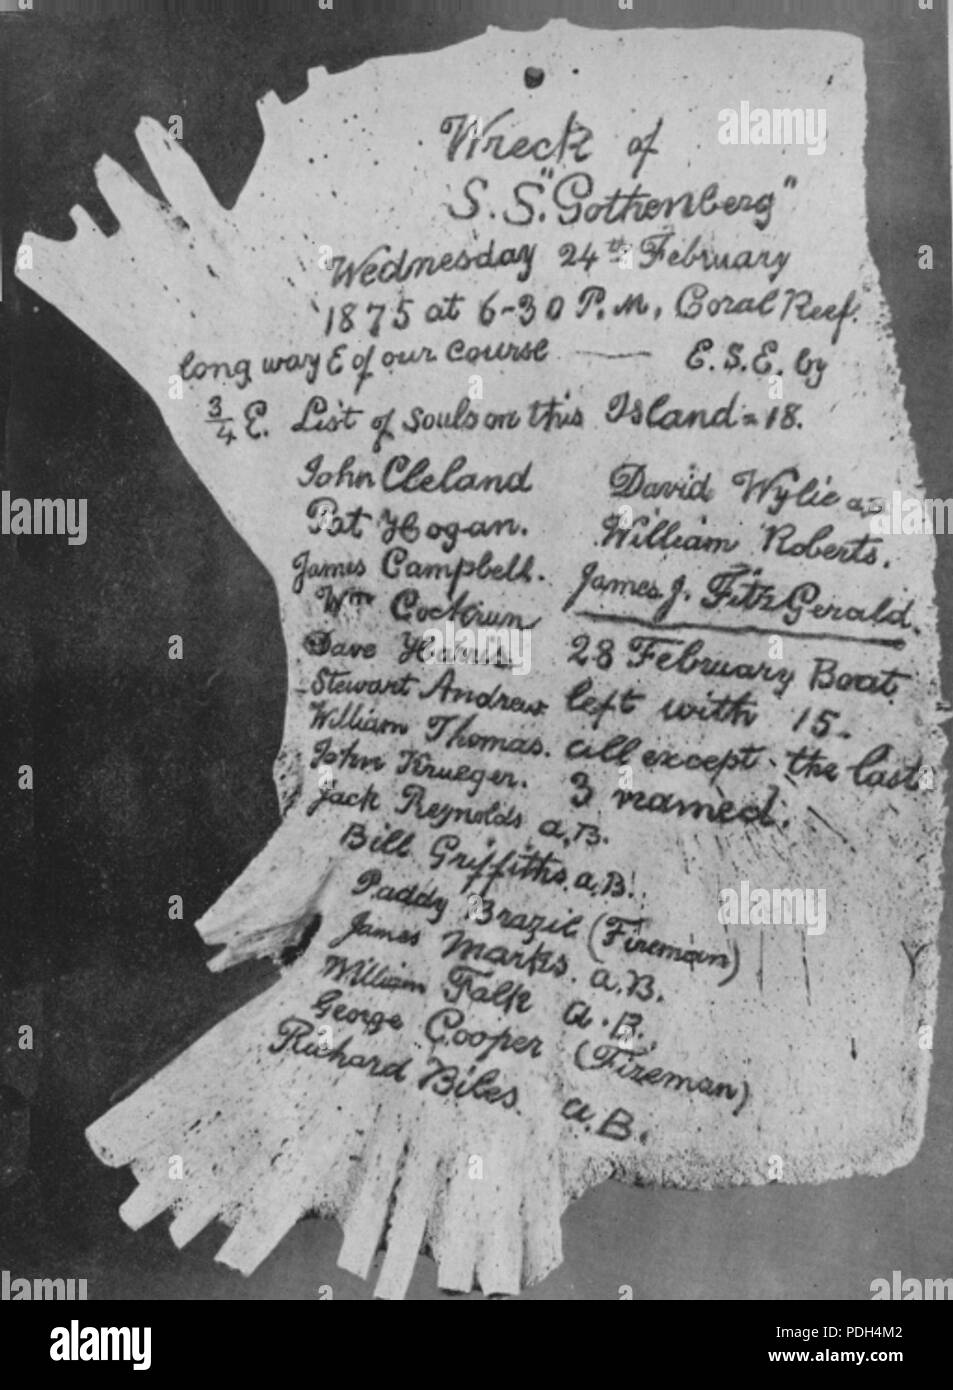 Wreck of
S.S. "Gothemberg"
Wednesday 24th February
1875 at 6-30 P.M, Coral Reef.
long way E of our course —— E.S.E. by
3/4 E. List of souls on this Island = 18.
John Cleland
Pat Hogan.
James Campbell.
Wm Cockrun
Dave Harris
Stewart Andrew
William Thomas.
John Krueger.
Jack Reynolds a,B.
Bill Griffiths. a,B.
Paddy Brazil (Fireman)
James Marks. a.B.
William Falk a.B.
George Cooper (Fireman)
Richard Biles. a.B.
David Wylie a,B
William Roberts.
James J. FitzGerald.
28 February Boat
left with 15.
all except the last
3 named.
alamy
Image ID: PDH4M2
www.alamy.com